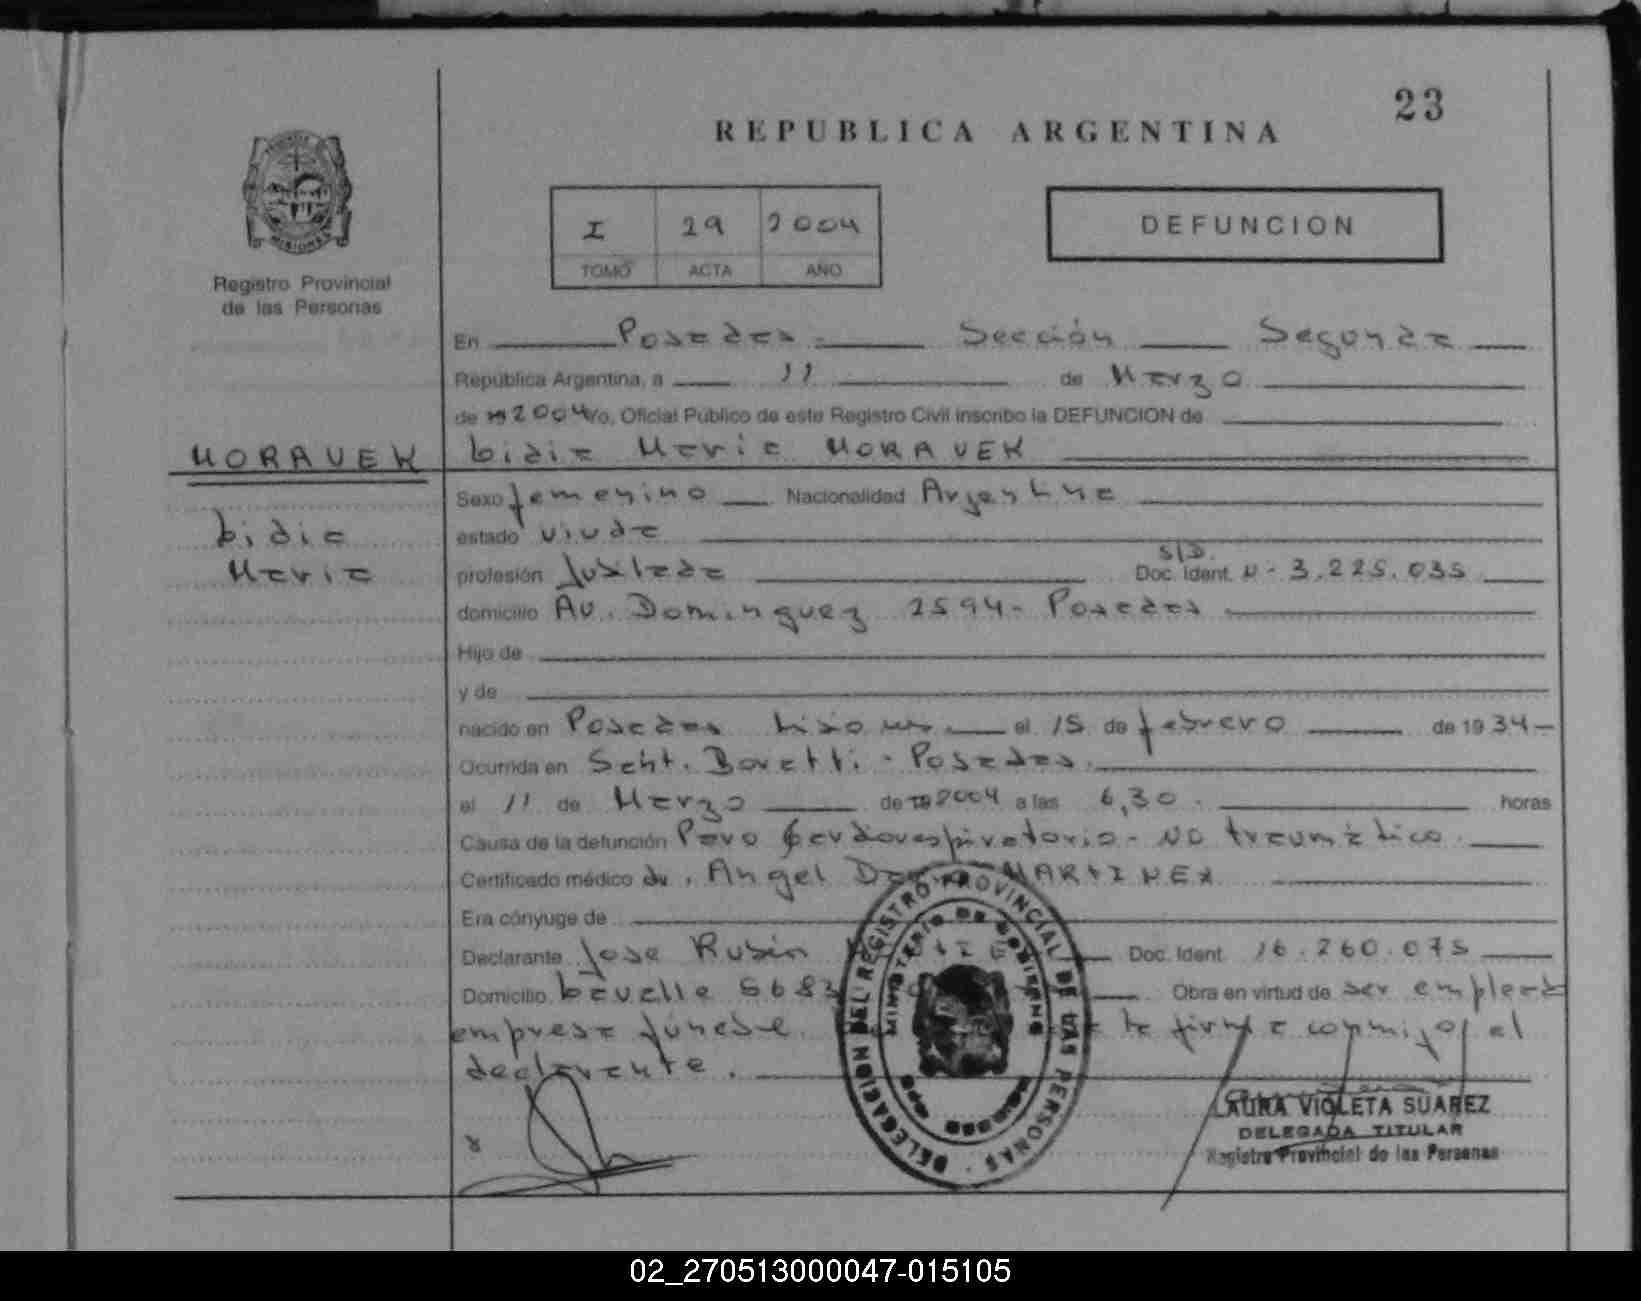 23
REPUBLICA ARGENTINA
MISIONES
Registro Provincial
de las Personas
I 29 2004
TOMO ACTA AÑO
DEFUNCION
En Posadas - Sección Segunda
República Argentina, a 11 de Marzo
de 19 2004 yo, Oficial Público de este Registro Civil inscribo la DEFUNCION de
MORAVEK
Lidia Maria MORAVEK
Lidia
Maria
Sexo femenino Nacionalidad Argentina
estado viuda
S/D.
profesión Jubilada Doc. Ident. N- 3.225.035
domicilio Av. Dominguez 2594- Posadas
Hijo de
y de
nacido en Posadas Misiones el 15 de febrero de 1934-
Ocurrida en Sant. Boratti - Posadas.
el 11 de Marzo de 19 2004 a las 6,30. horas
Causa de la defunción Paro Cardiorespiratorio - No traumático.
Certificado médico Dr. Angel MARTINEZ
Era cónyuge de
Declarante Jose Rubén Doc. Ident. 16.260.075
Domicilio Lavalle 5683 Obra en virtud de ser emplead
empresa fúnebre. firma conmigo el
declarante.
DELEGACION DEL REGISTRO PROVINCIAL DE LAS PERSONAS
MINISTERIO DE GOBIERNO
LAURA VIOLETA SUAREZ
DELEGADA TITULAR
Registro Provincial de las Personas
02_270513000047-015105